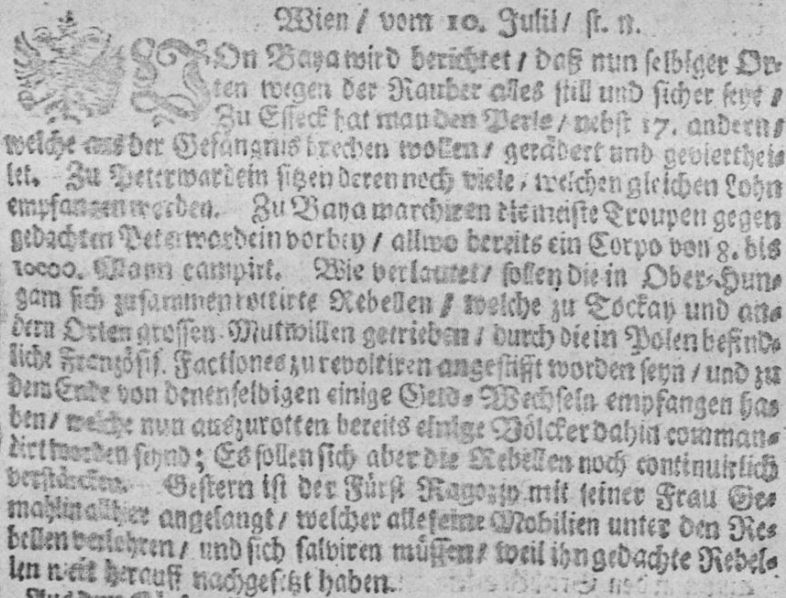 Wien / vom 10. Julii / st. n.
VOn Baya wird berichtet / daß nun selbiger Or-
ten wegen der Rauber alles still und sicher seye /
Zu Esseck hat man den Perle / nebst 17. andern /
welche aus der Gefängnus brechen wollen / gerädert und geviertheie
let. Zu Peterwardein sitzen deren noch viele / welchen gleichen Lohn
empfangen werden. Zu Baya marchiren die meiste Troupen gegen
gedachten Peterwardein vorbey / allwo bereits ein Corpo von 8. bis
10000. Mann campirt. Wie verlautet / sollen die in Ober-Hun-
garn sich zusammen rottirte Rebellen / welche zu Tockay und an-
dern Orten grossen Mutwillen getrieben / durch die in Polen befind-
liche Französis. Factiones zu revoltiren angestifft worden seyn / und zu
dem Ende von denenselbigen einige Geld-Wechseln empfangen ha-
ben / welche nun auszurotten bereits einige Völcker dahin comman-
dirt worden seynd; Es sollen sich aber die Rebellen noch continuirlich
verstärcken. Gestern ist der Fürst Ragozzy mit seiner Frau Ge-
mahlin allhier angelangt / welcher alle seine Mobilien unter den Re-
bellen verlohren / und sich salviren müssen / weil ihn gedachte Rebel-
len weit herauff nachgesetzt haben.